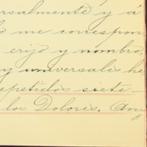 ersalmente y á
d me correspon
erijo y nombro
y universales he
epetidos escti
los Dolores, An